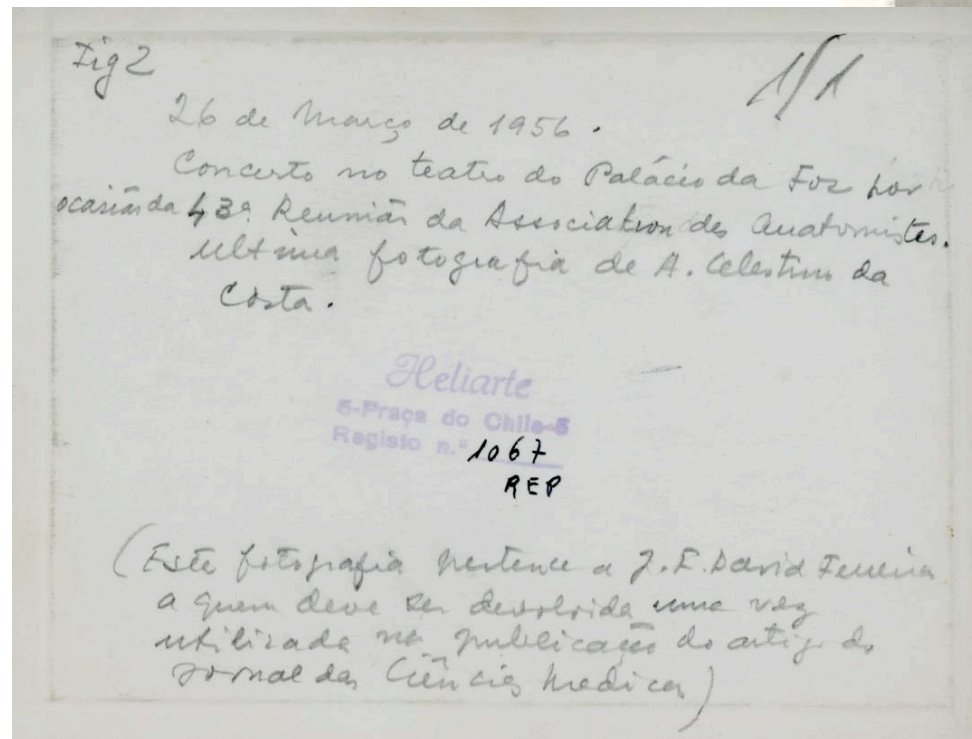 Fig 2
1/1
26 de Março de 1956.
Concerto no teatro do Palácio da Foz por
ocasião da 43ª Reunião da Association des Anatomistes.
Ultima fotografia de A. Celestino da
Costa.
Heliarte
5-Praça do Chile-5
Registo n.º 1067
REP
(Esta fotografia pertence a J. F. David Ferreira
a quem deve ser devolvida uma vez
utilizada na publicação do artigo do
Jornal das Ciências Medicas)